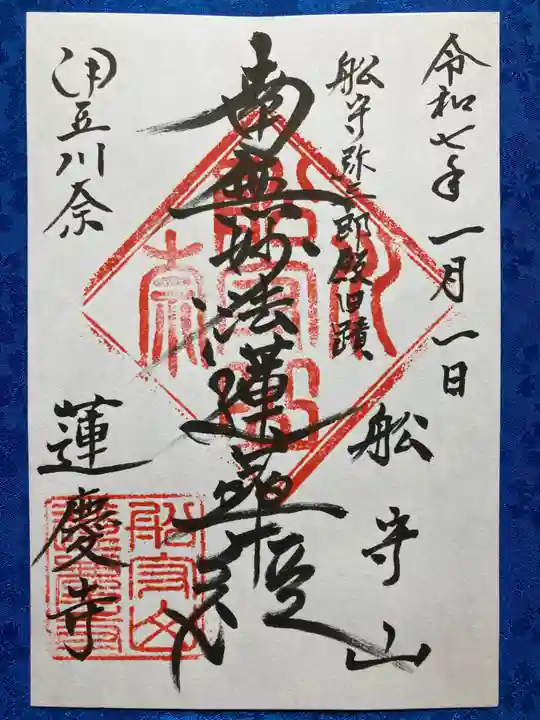 令和七年一月一日
船守山
船守弥三郎殿旧蹟
南無妙法蓮華経
伊豆川奈
蓮慶寺
船守山